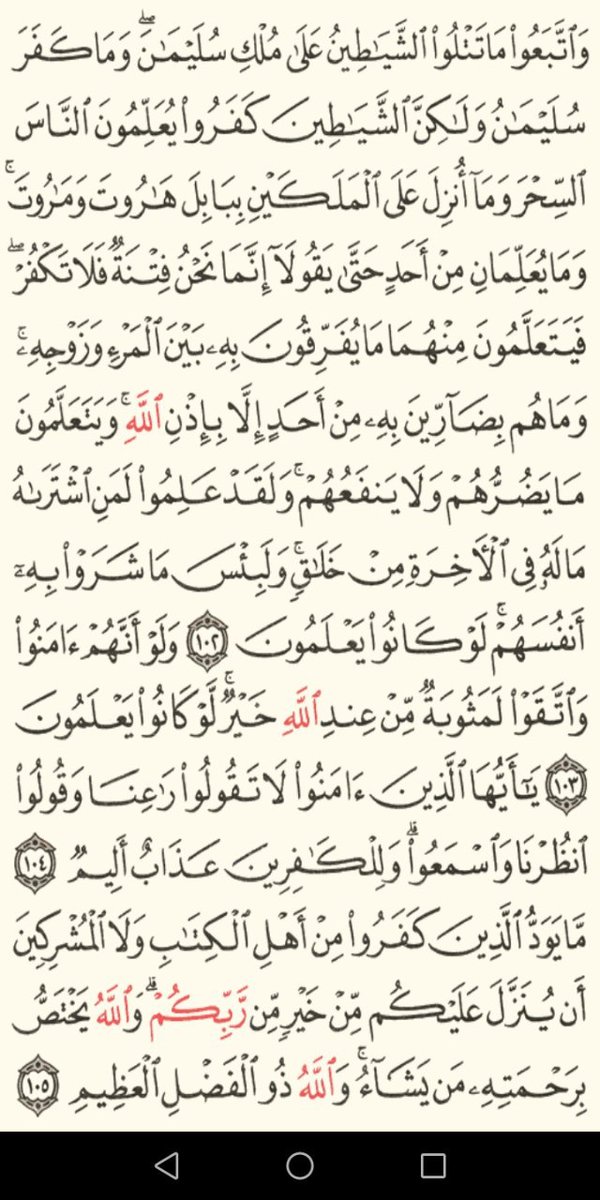 وَٱتَّبَعُوا۟ مَا تَتْلُوا۟ ٱلشَّيَـٰطِينُ عَلَىٰ مُلْكِ سُلَيْمَـٰنَ ۖ وَمَا كَفَرَ
سُلَيْمَـٰنُ وَلَـٰكِنَّ ٱلشَّيَـٰطِينَ كَفَرُوا۟ يُعَلِّمُونَ ٱلنَّاسَ
ٱلسِّحْرَ وَمَآ أُنزِلَ عَلَى ٱلْمَلَكَيْنِ بِبَابِلَ هَـٰرُوتَ وَمَـٰرُوتَ ۚ
وَمَا يُعَلِّمَانِ مِنْ أَحَدٍ حَتَّىٰ يَقُولَآ إِنَّمَا نَحْنُ فِتْنَةٌ فَلَا تَكْفُرْ ۖ
فَيَتَعَلَّمُونَ مِنْهُمَا مَا يُفَرِّقُونَ بِهِۦ بَيْنَ ٱلْمَرْءِ وَزَوْجِهِۦ ۚ
وَمَا هُم بِضَآرِّينَ بِهِۦ مِنْ أَحَدٍ إِلَّا بِإِذْنِ ٱللَّهِ ۚ وَيَتَعَلَّمُونَ
مَا يَضُرُّهُمْ وَلَا يَنفَعُهُمْ ۚ وَلَقَدْ عَلِمُوا۟ لَمَنِ ٱشْتَرَىٰهُ
مَا لَهُۥ فِى ٱلْـَٔاخِرَةِ مِنْ خَلَـٰقٍ ۚ وَلَبِئْسَ مَا شَرَوْا۟ بِهِۦٓ
أَنفُسَهُمْ ۚ لَوْ كَانُوا۟ يَعْلَمُونَ ١٠٢ وَلَوْ أَنَّهُمْ ءَامَنُوا۟
وَٱتَّقَوْا۟ لَمَثُوبَةٌ مِّنْ عِندِ ٱللَّهِ خَيْرٌ ۚ لَّوْ كَانُوا۟ يَعْلَمُونَ
١٠٣ يَـٰٓأَيُّهَا ٱلَّذِينَ ءَامَنُوا۟ لَا تَقُولُوا۟ رَٰعِنَا وَقُولُوا۟
ٱنظُرْنَا وَٱسْمَعُوا۟ ۗ وَلِلْكَـٰفِرِينَ عَذَابٌ أَلِيمٌ ١٠٤
مَّا يَوَدُّ ٱلَّذِينَ كَفَرُوا۟ مِنْ أَهْلِ ٱلْكِتَـٰبِ وَلَا ٱلْمُشْرِكِينَ
أَن يُنَزَّلَ عَلَيْكُم مِّنْ خَيْرٍ مِّن رَّبِّكُمْ ۗ وَٱللَّهُ يَخْتَصُّ
بِرَحْمَتِهِۦ مَن يَشَآءُ ۚ وَٱللَّهُ ذُو ٱلْفَضْلِ ٱلْعَظِيمِ ١٠٥